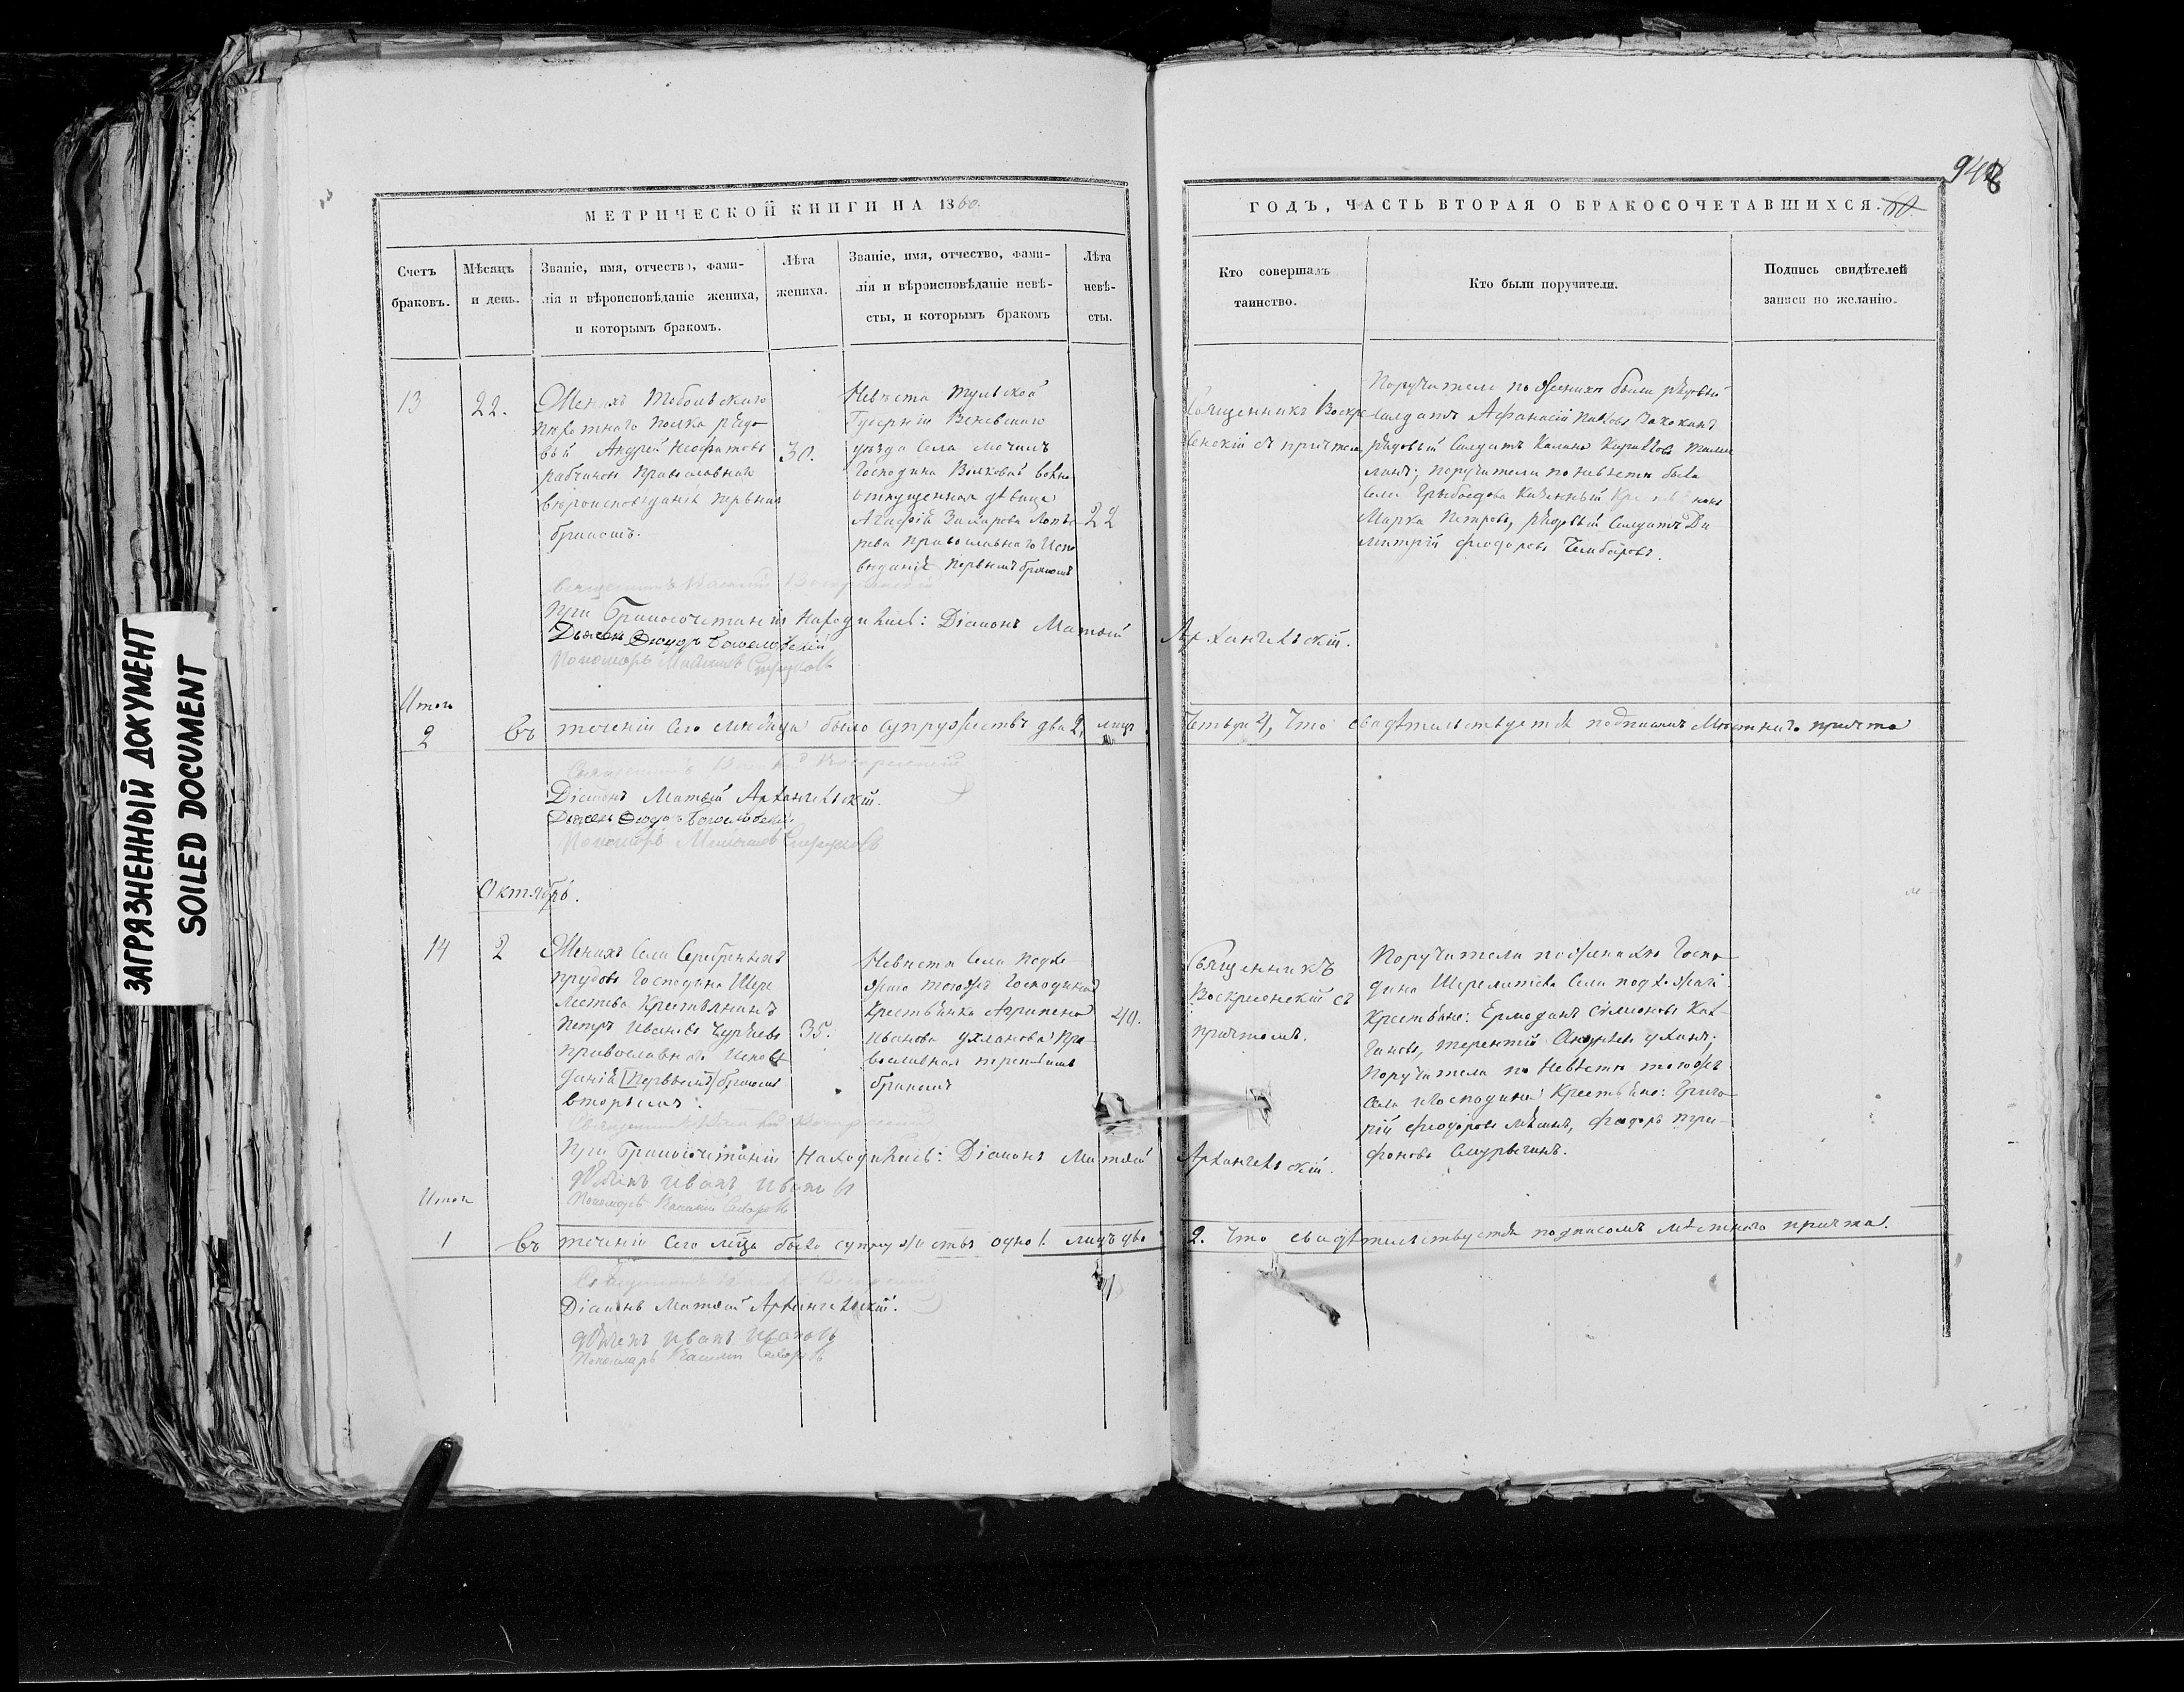 ЗАГРЯЗНЕННЫЙ ДОКУМЕНТ
SOILED DOCUMENT
МЕТРИЧЕСКОЙ КНИГИ НА 1860.
Счетъ браковъ.
Мѣсяцъ и день.
Званіе, имя, отчество, фами-
лія и вѣроисповѣданіе жениха,
и которымъ бракомъ.
Лѣта
жениха.
Званіе, имя, отчество, фами-
лія и вѣроисповѣданіе невѣ-
сты, и которымъ бракомъ
Лѣта
невѣ-
сты.
13
22.
Женихъ Тобольскаго
пѣхотнаго полка рядо
вый Андрей
православнаго
вѣроисповѣданія первымъ
бракомъ.
30.
Невѣста Тульской
Губерніи Веневскаго
уѣзда Села Мочилъ
Господина Волкова вольно
отпущенная дѣвица
Агафія Захарова
православнаго Испо
вѣданія первымъ бракомъ
22
Священникъ Василій Воскресенскій
При Бракосочетаніи Находились: Діаконъ Матвѣй
Дьячекъ Ѳеодоръ Богословскій
Пономарь
Итого
2
Въ теченіи Сего Мѣсяца было супружествъ два 2, лицъ
Священникъ Василій Воскресенскій
Діаконъ Матвѣй Архангельскій.
Дьячекъ Ѳеодоръ Богословскій.
Пономарь
Октябрь.
14
2
Женихъ Села Серебряныхъ
прудовъ Господина Шере
метева Крестьянинъ
Петръ Ивановъ
православнаго Исповѣ
данія [первымъ] бракомъ
вторымъ.
35.
Невѣста Села Подхо
жаго тогожъ Господина
Крестьянка Агрипена
Иванова Ухланова пра
вославная третьимъ
бракомъ
40.
Священникъ Василій Воскресенскій
При Бракосочетаніи Находились: Діаконъ Матвѣй
Дьячекъ Иванъ Ивановъ
Пономарь Василій
Итого
1
Въ теченіи Сего мѣсца было супружествъ одно 1. лицъ два
Священникъ Василій Воскресенскій
Діаконъ Матвѣй Архангельскій.
Дьячекъ Иванъ Ивановъ
Пономарь Василій
ГОДЪ, ЧАСТЬ ВТОРАЯ О БРАКОСОЧЕТАВШИХСЯ.
Кто совершалъ
таинство.
Кто были поручители.
Подпись свидѣтелей
записи по желанію.
Священникъ Воскре
сенскій съ причтомъ
Поручители по Женихѣ были рядовый
Солдатъ Афанасій Павловъ
рядовый Солдатъ Калина Кириловъ
Поручители по невѣстѣ были
Села Грыбоедова
Марка Петровъ, рядовый Солдатъ Ди
митрій Феодоровъ
Архангельскій.
Четыри 4, Что свидѣтельствуется подписомъ Мѣстнаго причта
Священникъ
Воскресенскій съ
причтомъ.
Поручители по женихѣ Госпо
дина Шереметева Села подхожаго
Крестьяне: Ермоланъ Симионовъ
Терентій Андреевъ
поручители по Невѣстѣ тогожъ
Села и Господина Крестьяне: Григо
рій Феодоровъ Феодоръ
Архангельскій.
2. Что свидѣтельствуется подписомъ мѣстнаго причта.